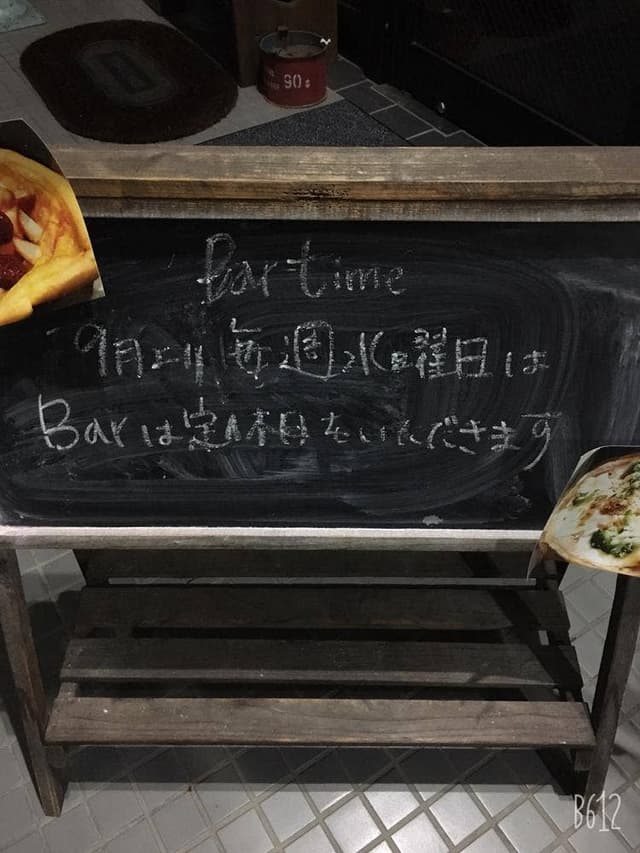 90¢
Bar time
9月より毎週水曜日は
Barは定休日をいただきます
B612